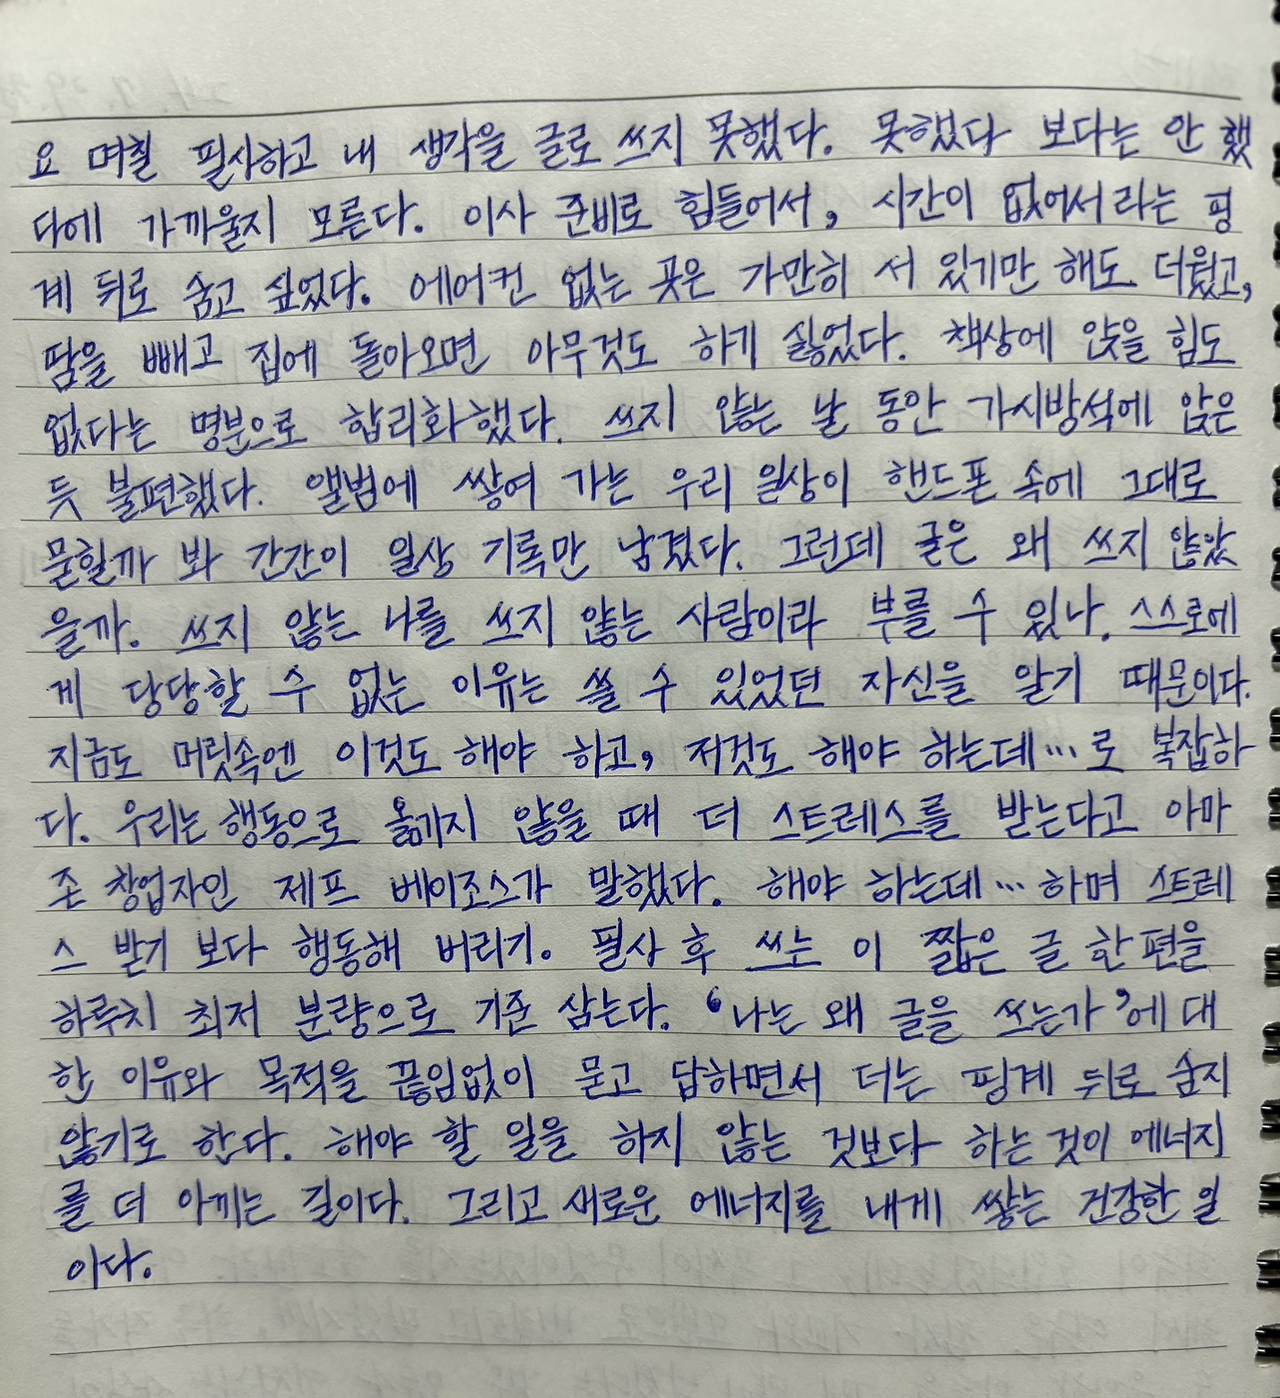 요 며칠 필사하고 내 생각을 글로 쓰지 못했다. 못했다 보다는 안 했
다에 가까울지 모른다. 이사 준비로 힘들어서, 시간이 없어서라는 핑
계 뒤로 숨고 싶었다. 에어컨 없는 곳은 가만히 서 있기만 해도 더웠고,
땀을 빼고 집에 돌아오면 아무것도 하기 싫었다. 책상에 앉을 힘도
없다는 명분으로 합리화했다. 쓰지 않는 날 동안 가시방석에 앉은
듯 불편했다. 앨범에 쌓여 가는 우리 일상이 핸드폰 속에 그대로
묻힐까 봐 간간이 일상 기록만 남겼다. 그런데 글은 왜 쓰지 않았
을까. 쓰지 않는 나를 쓰지 않는 사람이라 부를 수 있나. 스스로에
게 당당할 수 없는 이유는 쓸 수 있었던 자신을 알기 때문이다.
지금도 머릿속엔 이것도 해야 하고, 저것도 해야 하는데…로 복잡하
다. 우리는 행동으로 옮기지 않을 때 더 스트레스를 받는다고 아마
존 창업자인 제프 베이조스가 말했다. 해야 하는데… 하며 스트레
스 받기 보다 행동해 버리기. 필사 후 쓰는 이 짧은 글 한 편을
하루치 최저 분량으로 기준 삼는다. '나는 왜 글을 쓰는가'에 대
한 이유와 목적을 끊임없이 묻고 답하면서 더는 핑계 뒤로 숨지
않기로 한다. 해야 할 일을 하지 않는 것보다 하는 것이 에너지
를 더 아끼는 길이다. 그리고 새로운 에너지를 내게 쌓는 건강한 일
이다.